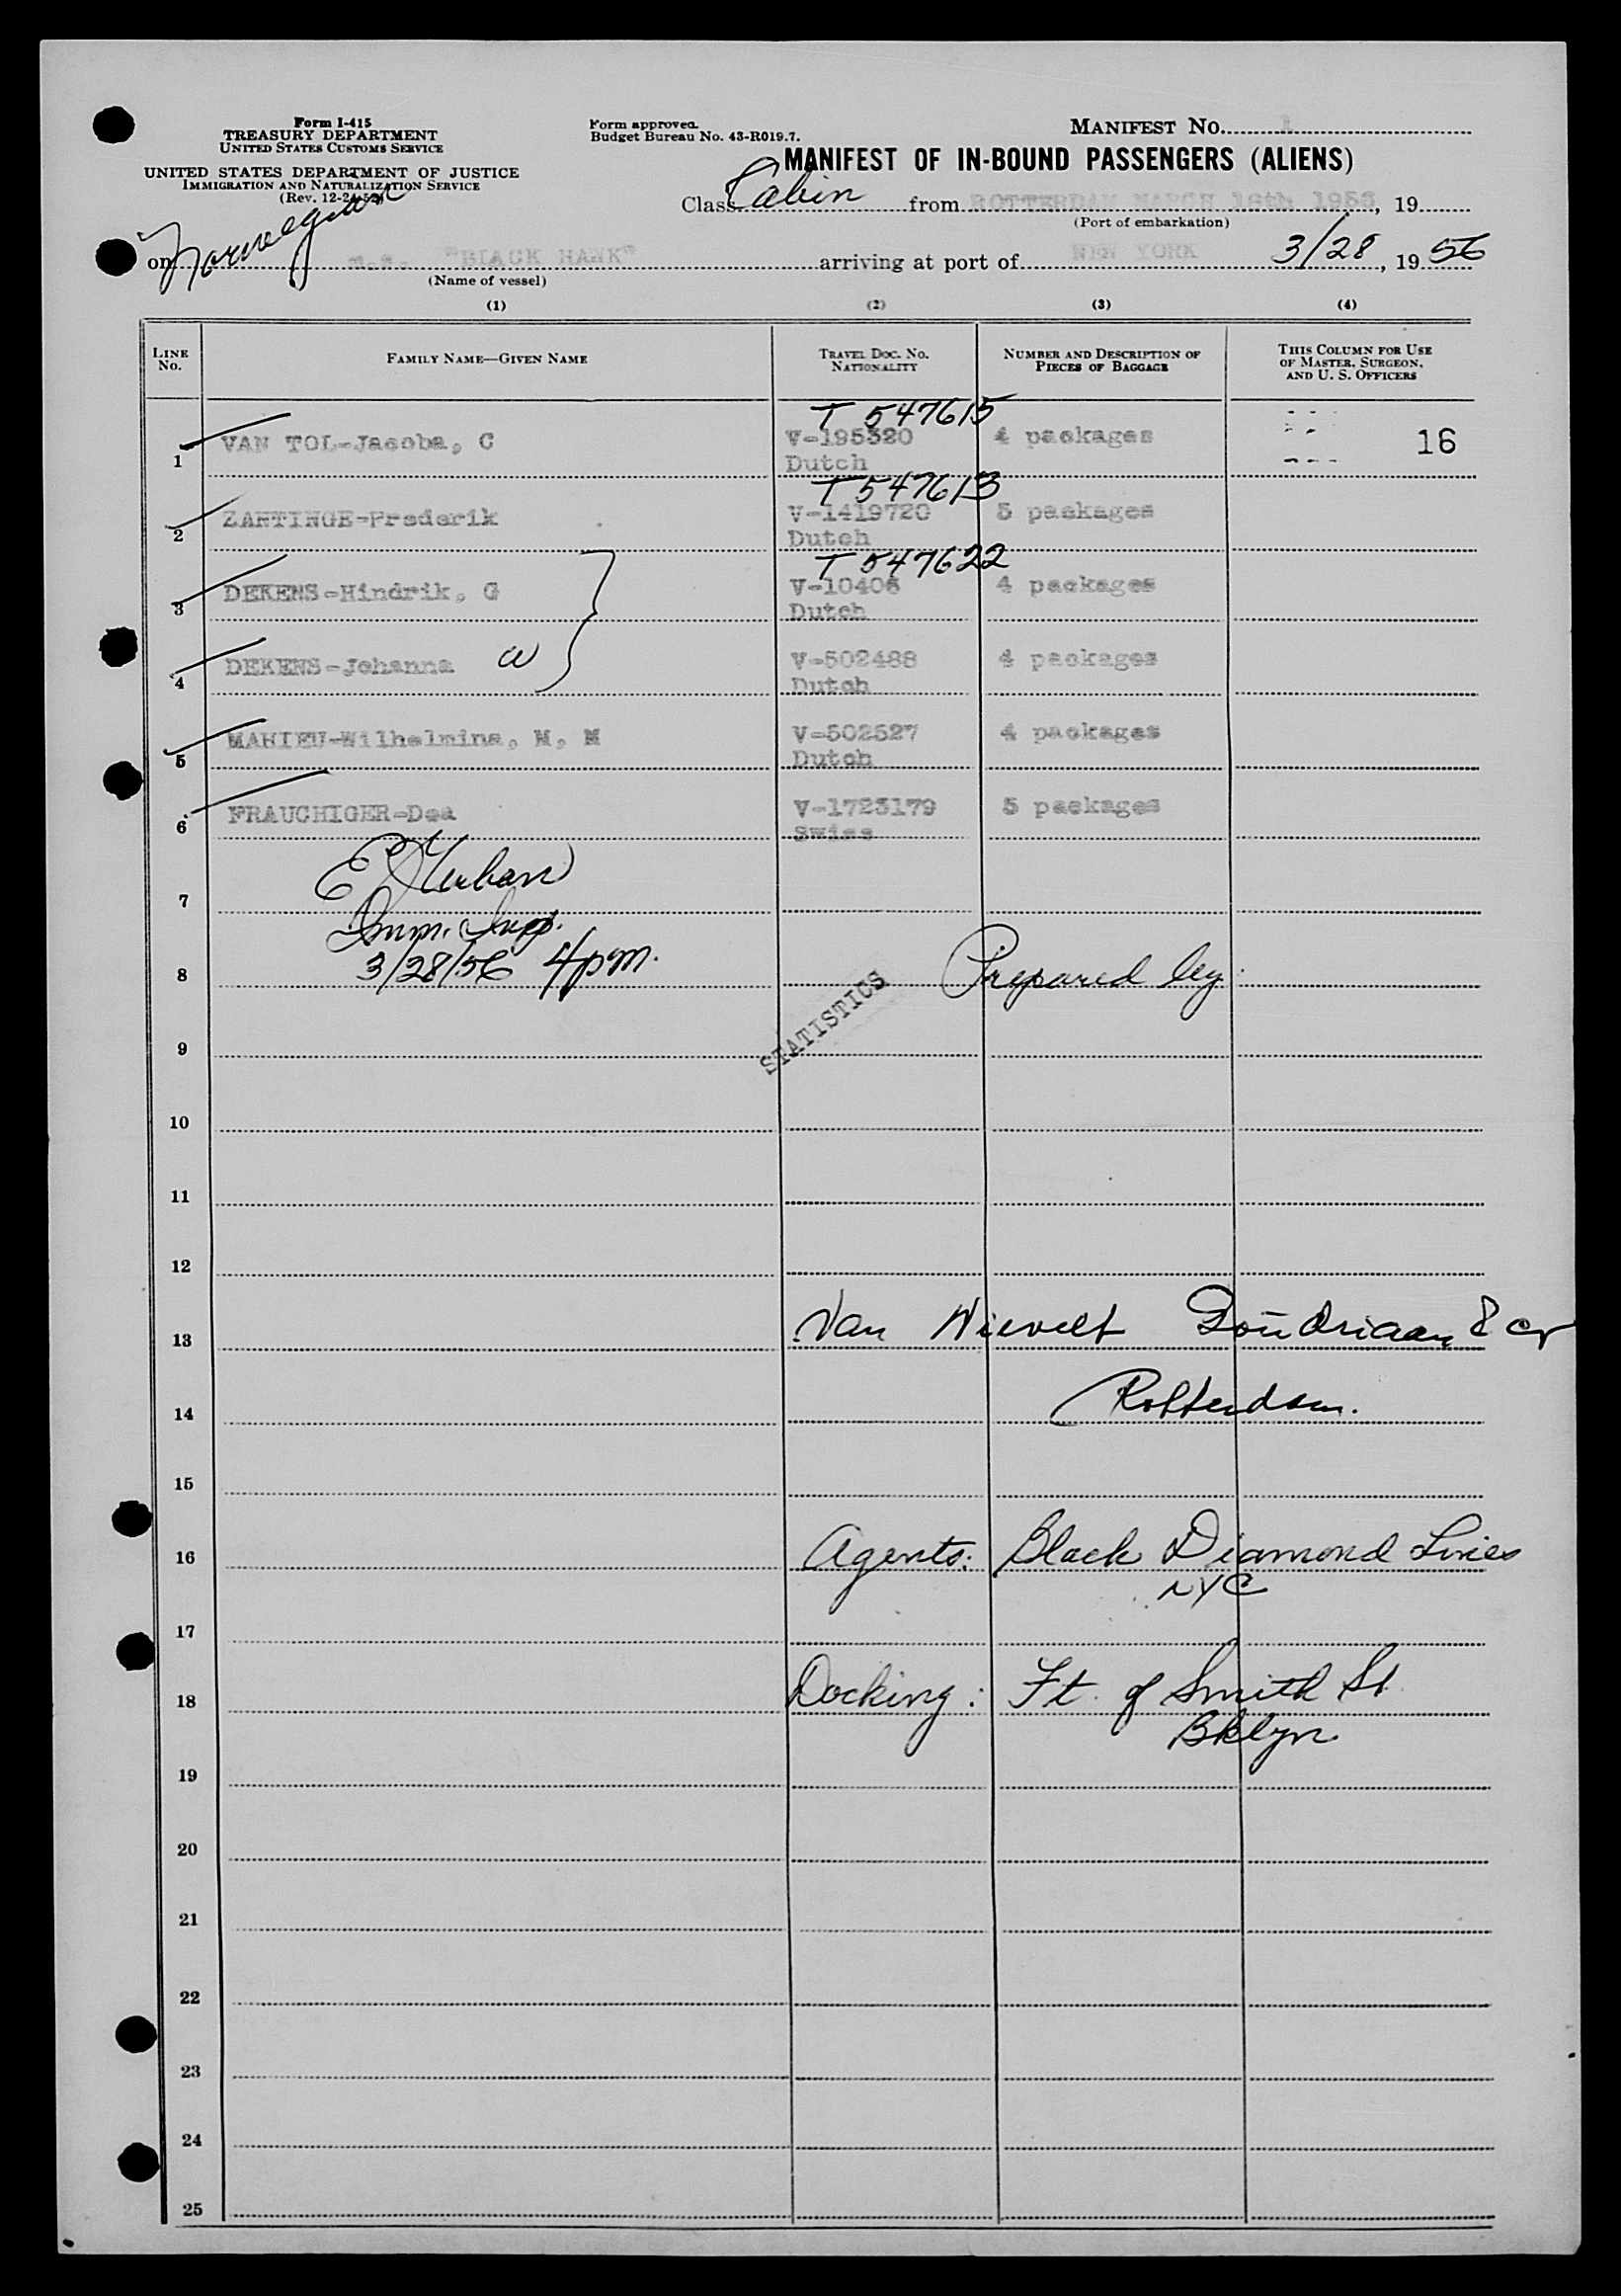 Form I-415
TREASURY DEPARTMENT
UNITED STATES CUSTOMS SERVICE
UNITED STATES DEPARTMENT OF JUSTICE
IMMIGRATION AND NATURALIZATION SERVICE
(Rev. 12-24-52)
Form approved.
Budget Bureau No. 43-R019.7.
MANIFEST No. 1
MANIFEST OF IN-BOUND PASSENGERS (ALIENS)
Class Cabin from ROTTERDAM MARCH 16th 1956, 19
(Port of embarkation)
on Norwegian m.s. "BLACK HAWK" arriving at port of NEW YORK 3/28, 1956
(Name of vessel)
(1) (2) (3) (4)
LINE No. FAMILY NAME—GIVEN NAME TRAVEL DOC. No. NATIONALITY NUMBER AND DESCRIPTION OF PIECES OF BAGGAGE THIS COLUMN FOR USE OF MASTER, SURGEON, AND U. S. OFFICERS
T 547615
1 VAN TOL-Jacoba, C V-195320 4 packages 16
Dutch
T 547613
2 ZANTINGE-Frederik V-1419720 5 packages
Dutch
T 547622
3 DEKENS-Hindrik, G V-10406 4 packages
Dutch
4 DEKENS-Johanna W V-502488 4 packages
Dutch
5 MAHIEU-Wilhelmina, M, M V-502527 4 packages
Dutch
6 FRAUCHIGER-Dea V-1723179 5 packages
Swiss
7
Imm. Insp.
8 3/28/56 4pm. Prepared by:
STATISTICS
9
10
11
12
13 Van Nievelt Goudriaan & Co
14 Rotterdam.
15
16 Agents: Black Diamond Lines
NYC
17
18 Docking: Ft. of Smith St.
Bklyn
19
20
21
22
23
24
25